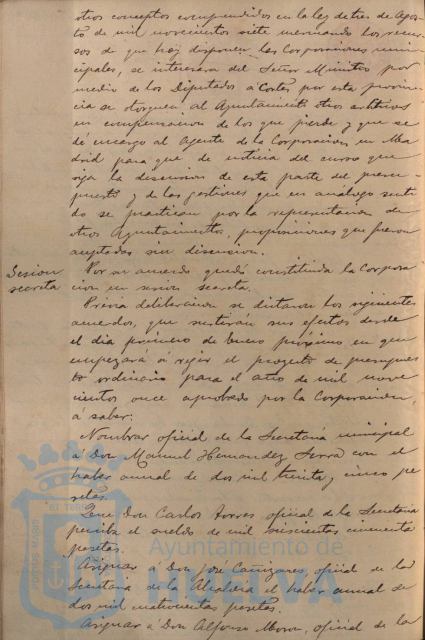 otros conceptos comprendidos en la ley de tres de Agos-
to de mil novecientos siete mermando los recur-
sos de que hoy disponen las Corporaciones muni-
cipales, se interesara del Señor Ministro por
medio de los Diputados á Cortes por esta provin-
cia se otorguen al Ayuntamiento otros arbitrios
en compensacion de los que pierde y que se
dé encargo al Agente de la Corporacion en Ma-
drid para que de noticia del curso que
siga la discusion de esta parte del presu-
puesto y de las gestiones que en análogo senti-
do se practican por la representacion de
otros Ayuntamientos, proposiciones que fueron
aceptadas sin discusion.
Sesion
secreta
Por su acuerdo quedó constituida la Corpora
cion en sesion secreta.
Previa deliberacion se dictaron los siguientes
acuerdos, que surtirán sus efectos desde
el dia primero de Enero próximo en que
empezará á regir el proyecto de presupues
to ordinario para el año de mil nove
cientos once aprobado por la Corporacion,
á saber:
Nombrar oficial de la Secretaria municipal
á Don Manuel Hernandez Serra con el
haber anual de dos mil treinta y cinco pe
setas.
Que Don Carlos Torres oficial de la Secretaria
perciba el sueldo de mil seiscientas cincuenta
pesetas.
Asignar á Don José Cañizares, oficial de la
Secretaria de la Alcaldia el haber anual de
dos mil cuatrocientas pesetas.
Asignar á Don Alfonso Moron, oficial de la
Ayuntamiento de
HUELVA